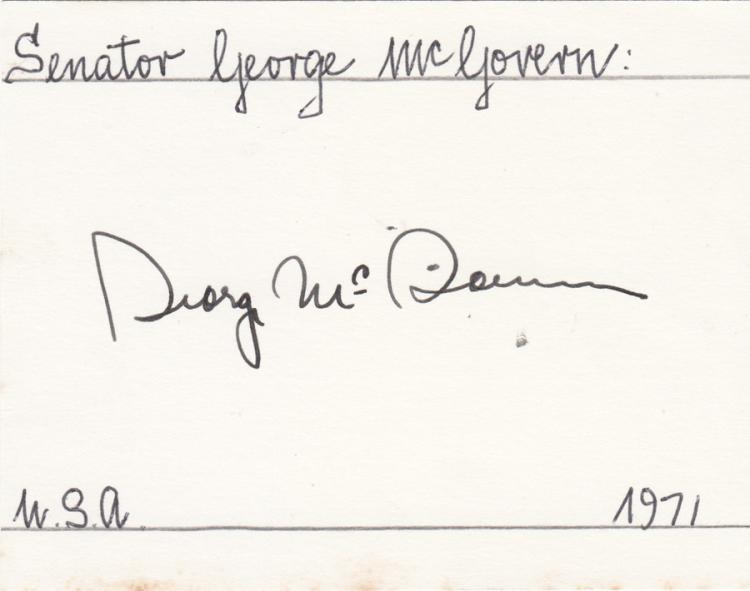 Senator George McGovern:
George McGovern
U.S.A. 1971